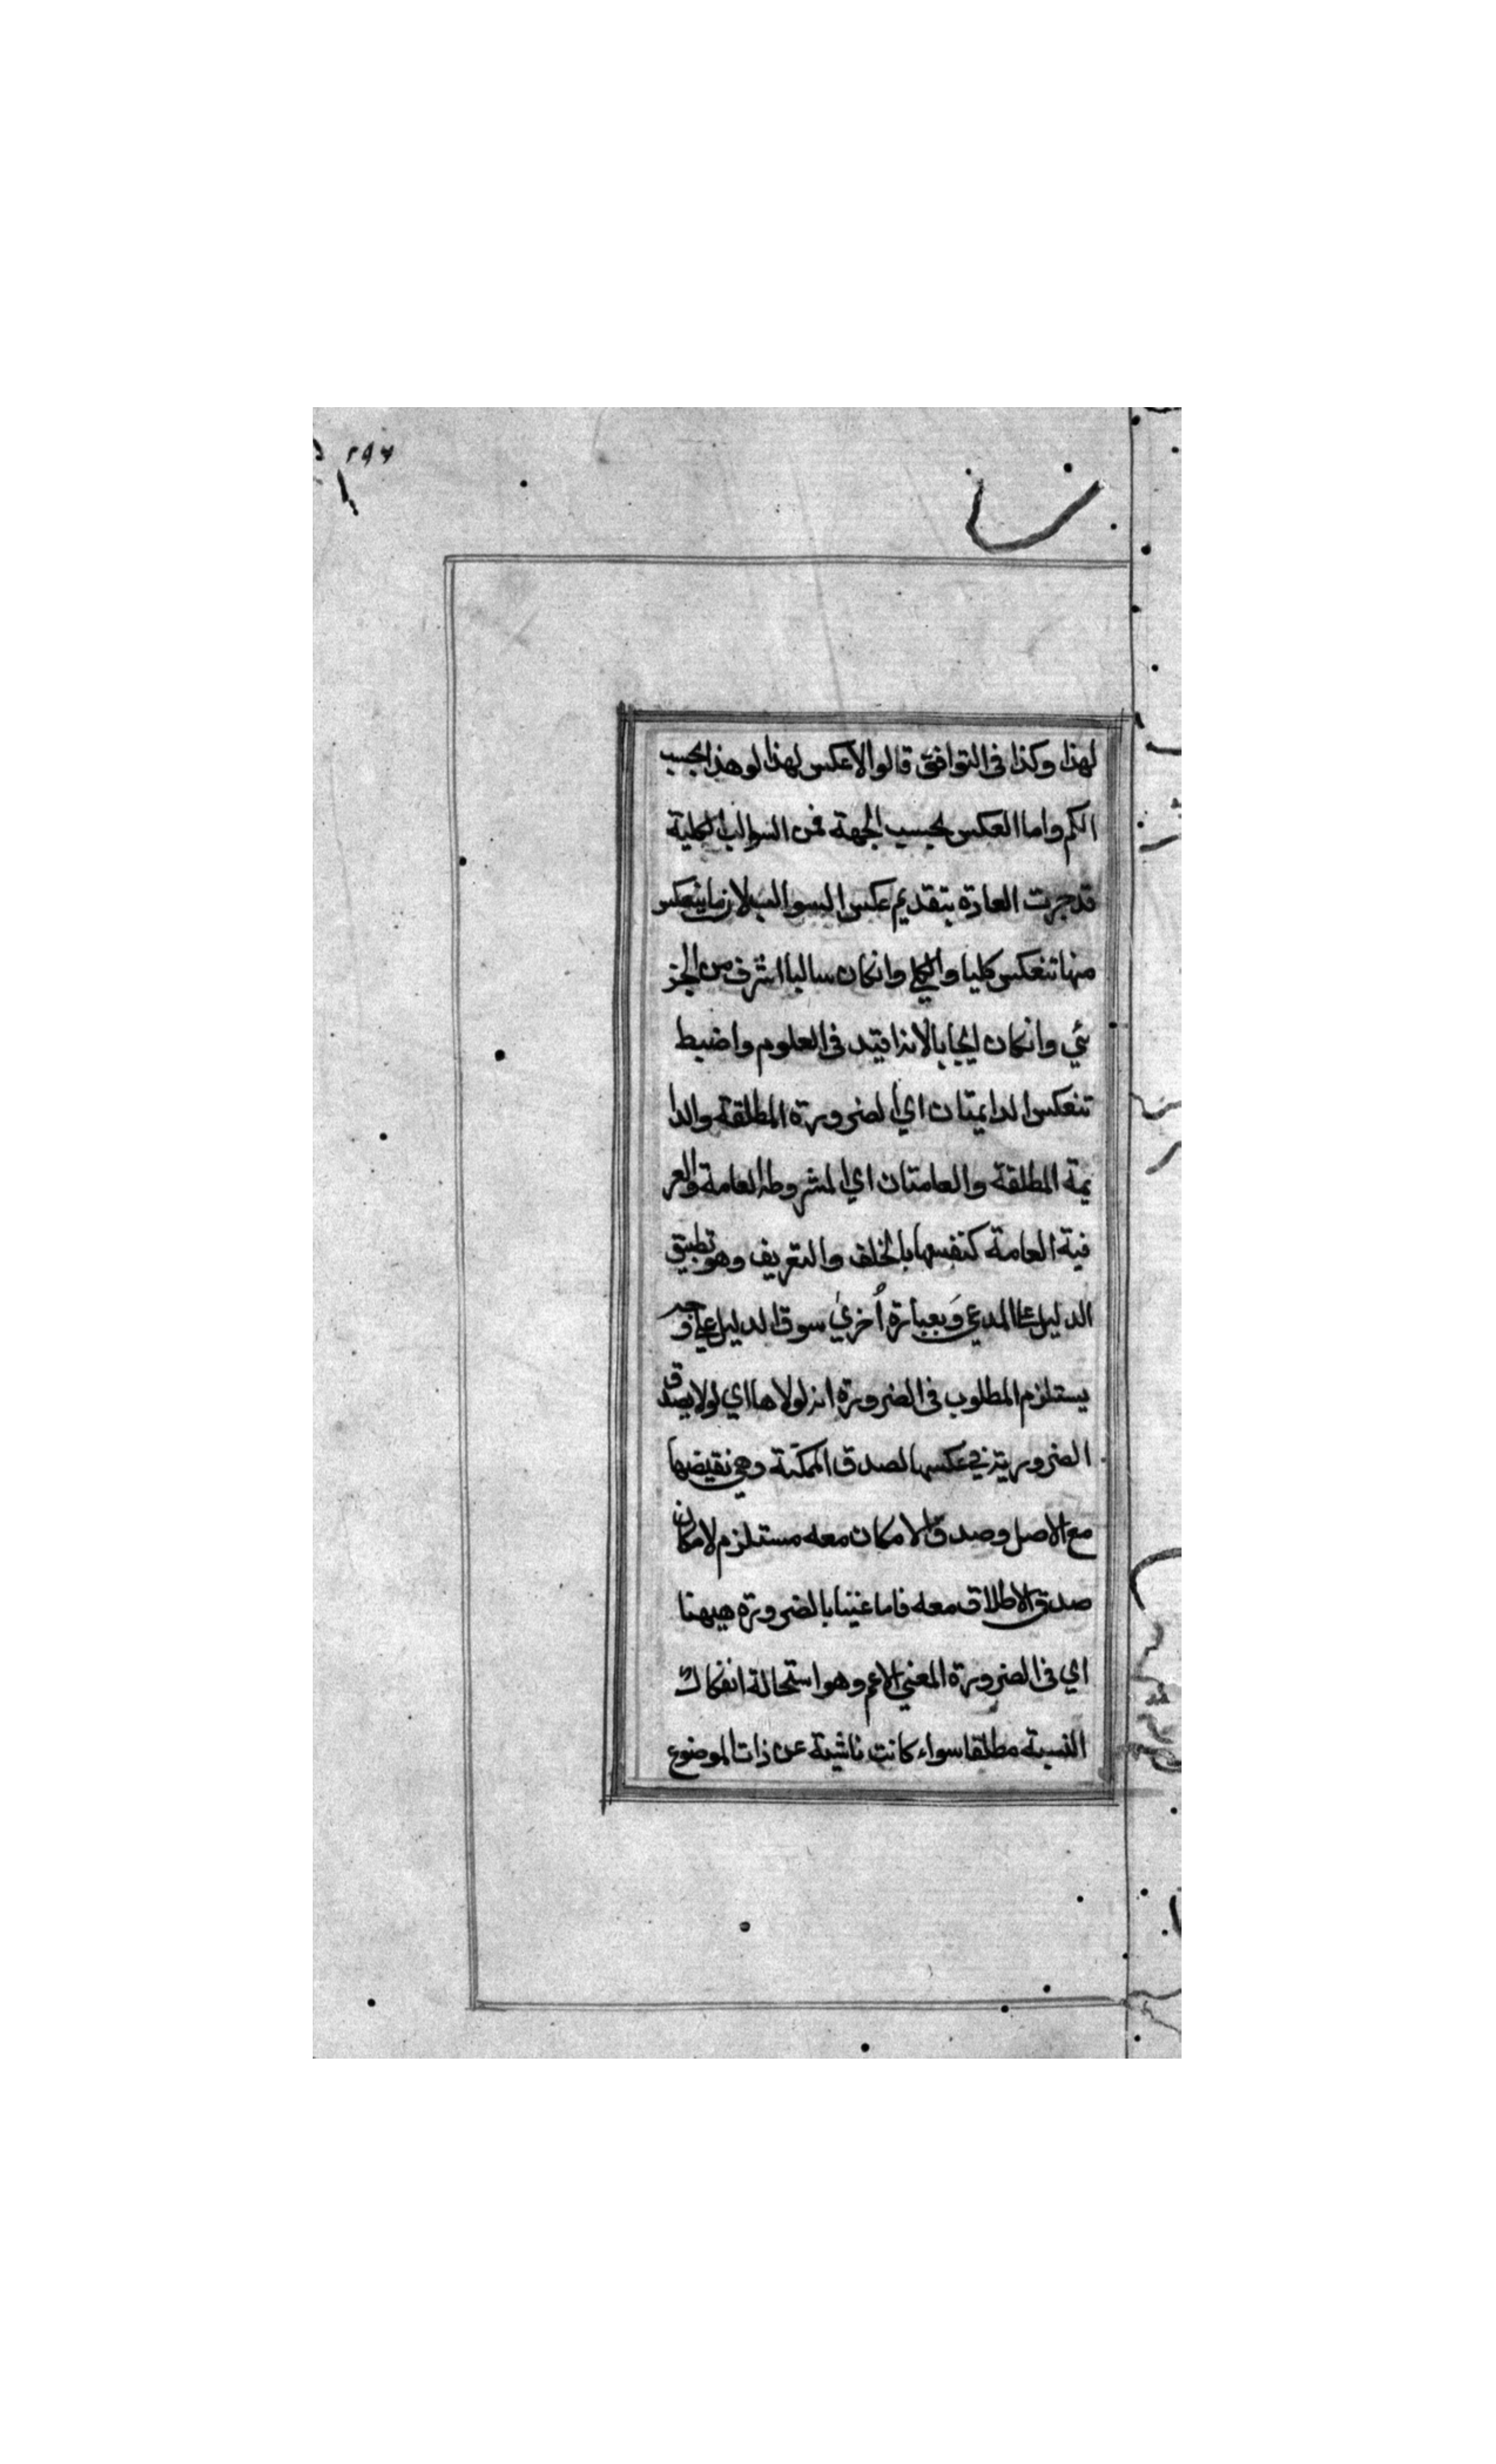 ٢٩٧
لهذا وكذا فى التوافق قالوا لا عكس لهذا لو هذا بحسب
الكم واما العكس بحسب الجهة فمن السوالب الكلية
قد جرت العادة بتقديم عكس السوالب لان ما ينعكس
منها تنعكس كليا والكلي وانكان سالبا اشرف من الجز
ئي وانكان ايجابا لانه افيد فى العلوم واضبط
تنعكس الدايمتان اي الضرورة المطلقة والدا
يمة المطلقة والعامتان اي المشروطة العامة والعر
فية العامة كنفسها بالخلف والتعريف وهو تطبيق
الدليل على المدعي وَبعبارة اُخريٰ سوق الدليل علي وجه
يستلزم المطلوب فى الضرورة اذ لولاها اي لولا يصدق
الضرورية في عكسها لصدق الممكنة وهي نقيضها
مع الاصل وصدق الامكان معه مستلزم لامكان
صدق الاطلاق معه فاما عنينا بالضرورة هيهنا
اي فى الضرورة المعني الاعم وهو استحالة انفكاك
النسبة مطلقا سواء كانت ناشية عن ذات الموضوع